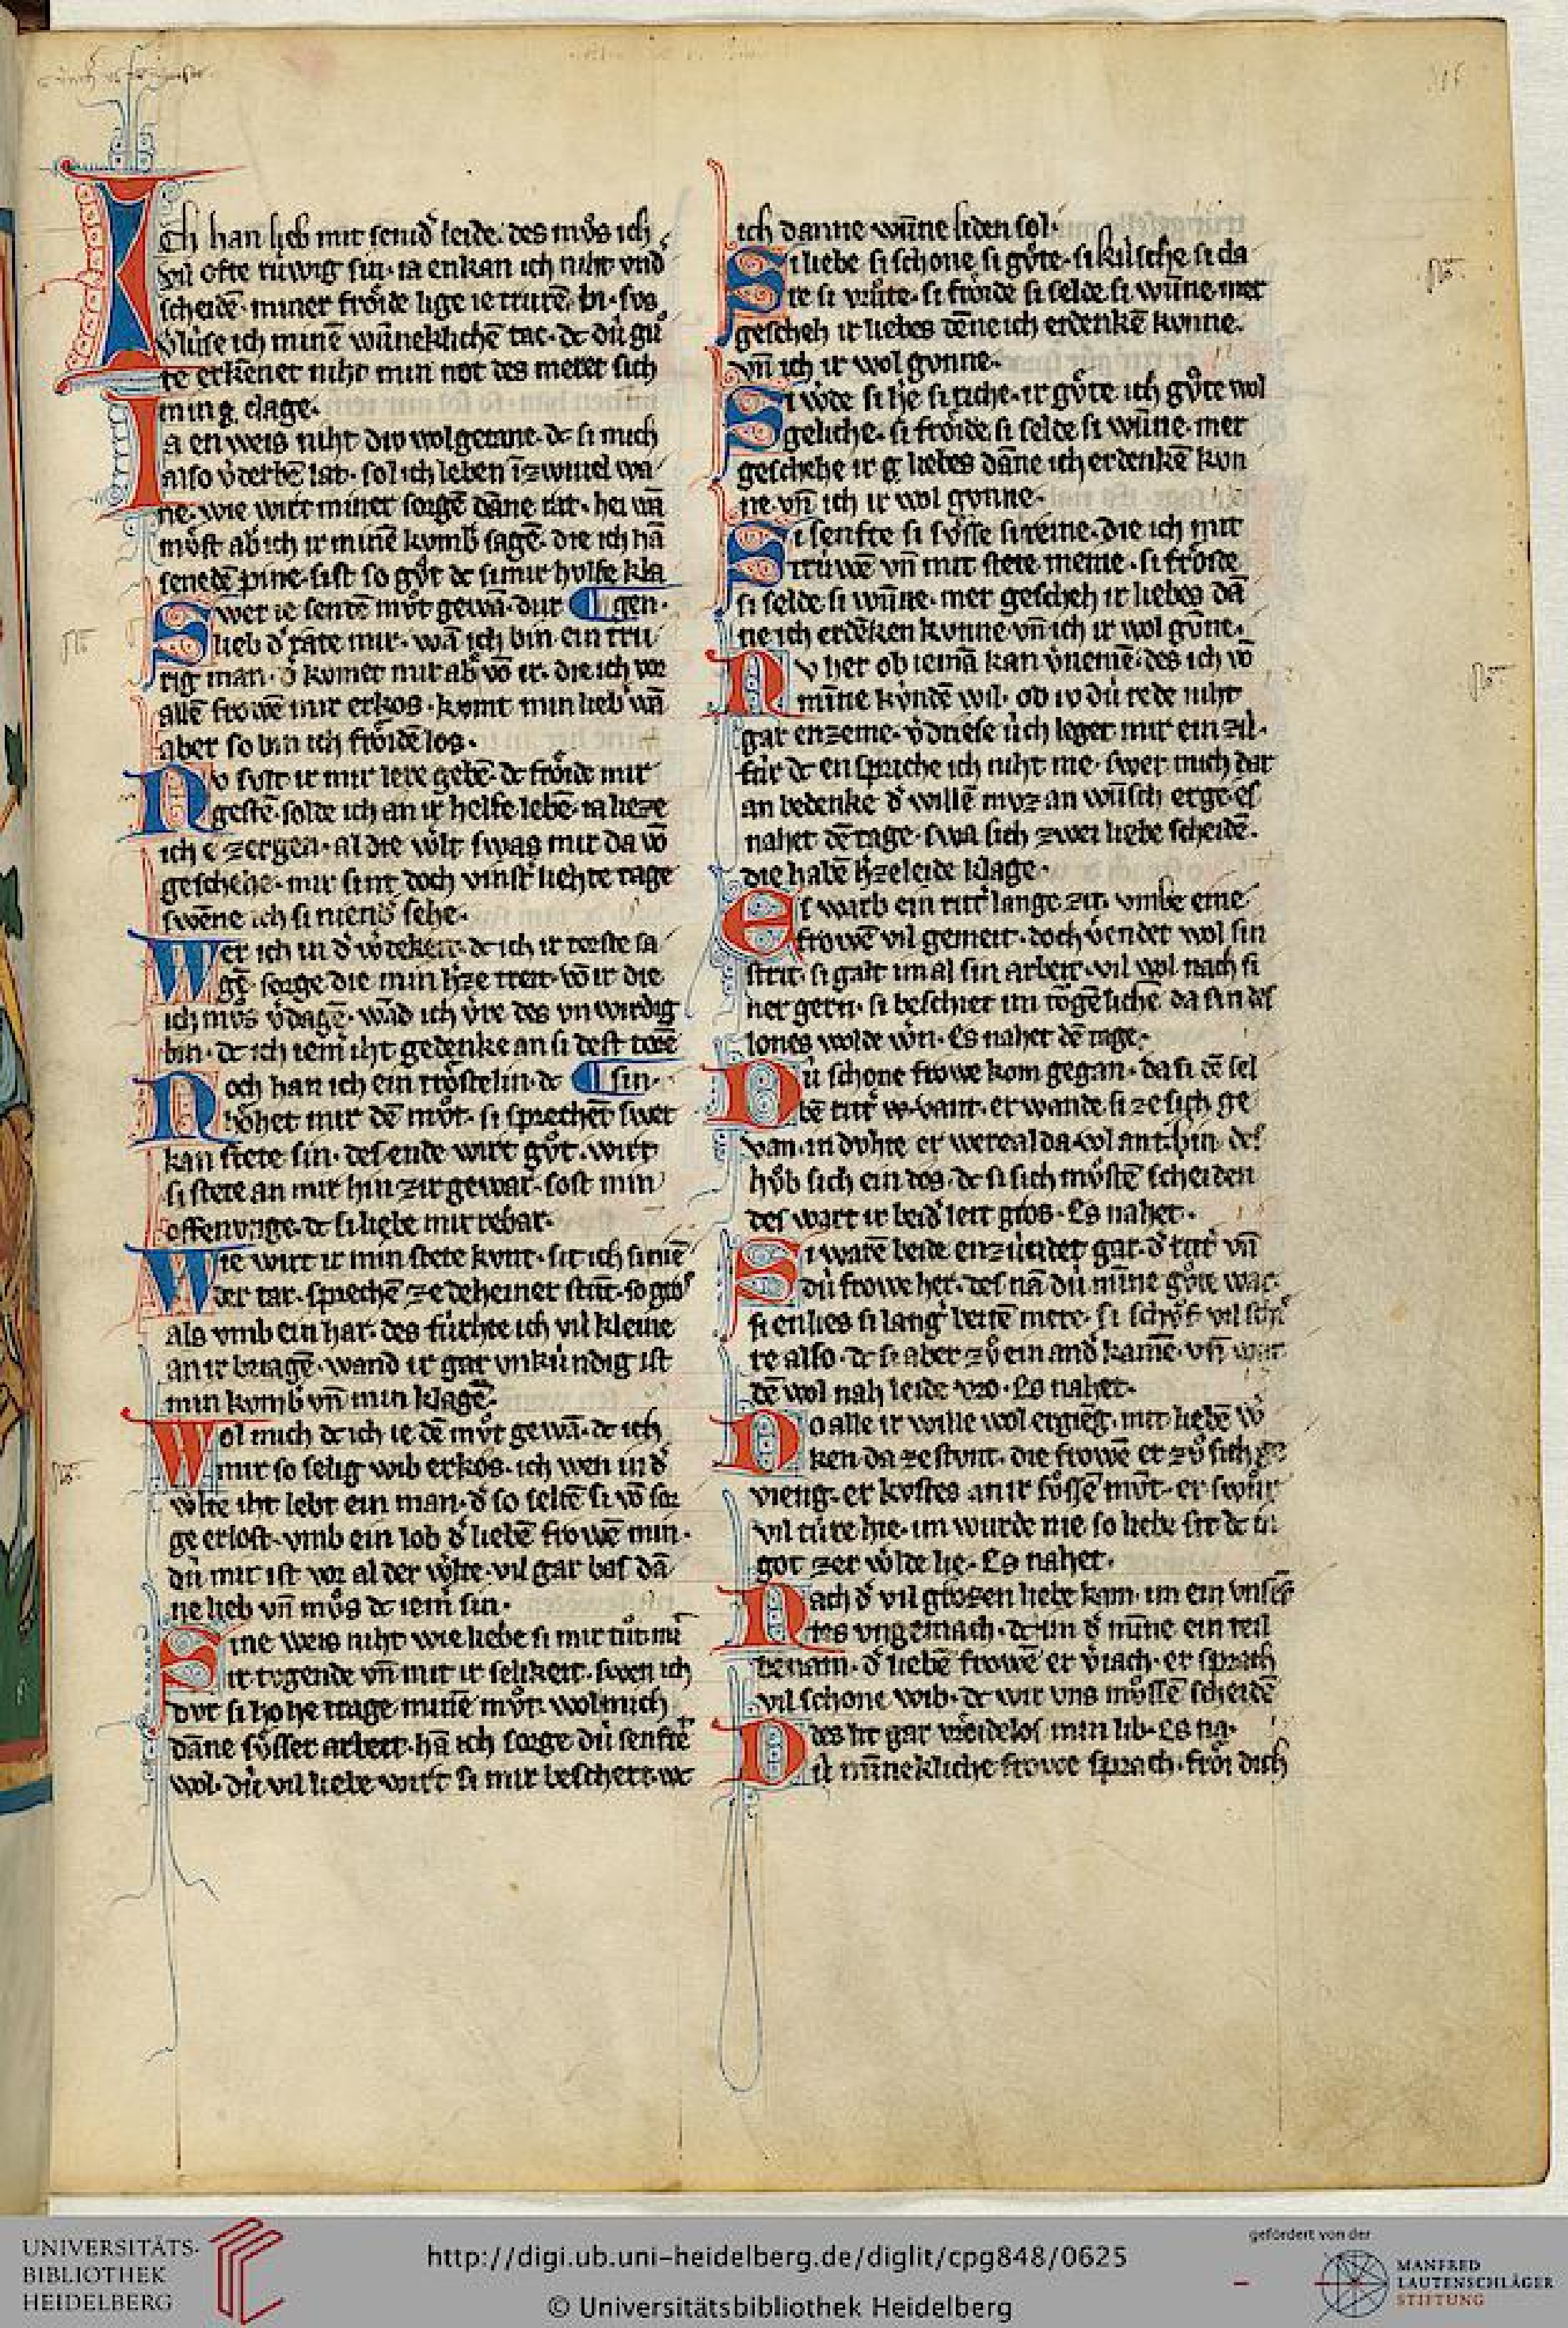 Ich han lieb mit send̾ leide. des mvͦs ich
vil ofte rúwig sin. ia enkan ich niht vnd̾
scheidē. miner froͤide lige ie trurē bi. svs
v̾lúse ich minē wūneklichē tac. dc dú guͦ
te erkēnet niht min not des meret sich
min g. clage.
Ia en weis niht div wolgetane. dc si mich
also v̾derbē lat. sol ich leben ī zwiuel wa
ne. wie wirt miner sorgē dāne rat. hei wā
moͤst ab ich ir minē kumb̾ sagē. die ich hā
senedē pine. si ist so gvͦt dc si mir hvlfe kla
Swer ie sentē mvͦt gewā. dur ¶ gen.
lieb d̾ rate mir. wā ich bin ein tru
rig man. d̾ komet mir ab vō ir. die ich vor
allē frowē mir erkos. kvmt min lieb wā
aber so bin ich froͤidē los.
Nv svlt ir mir lere gebē. dc froͤide mir
gestē. solde ich an ir helfe lebē. ia lieze
ich e zergen. al die w̾lt swas mir da vō
geschehe. mir sint doch vinst̾ liehte tage
swēne ich si niend̾ sehe.
Wer ich in d̾ w̾dekeit. dc ich ir torste sa
gē. sorge die min h̾ze treit. vō ir die
ich mvͦs v̾dagē. wād ich v̾re des vn wirdig
bin. dc ich iem̾ iht gedenke an si dest torē
Noch han ich ein troͤstelin. dc ¶ sin.
hoͤhet mir dē mvͦt. si sprechēt swer
kan stete sin. des ende wirt gvͦt. wirt
si stete an mir hin zir gewar. sost min
offenvnge. dc si liebe mir rebar.
Wie wirt ir min stete kvnt. sit ich si niē
der tar. sprechē ze deheiner stūt. so groͤs
als vmb ein har. des fúrhte ich vil kleine
an ir bragē. wand ir gar vnkúndig ist
min komb̾ vn̄ min klagē.
Wol mich dc ich ie dē mvͦt gewā. dc ich
mir so selig wib erkos. ich wen in d̾
w̾lte iht lebt ein man. d̾ so seltē si vō sor
ge erlost. vmb ein lob d̾ liebē frowē min.
dú mir ist vor al der w̾lte. vil gar bas dā
ne lieb vn̄ mvͦs dc iem̾ sin.
Sine weis niht wie liebe si mir tuͦt mi̅
ir tvgende vn̄ mit ir selikeit. swen ich
dvr si ho he trage minē mvͦt. wol mich
dāne svͤsser arbeit. hā ich sorge dú senfte
wol. dú vil liebe wirt si mir beschert. wc
ich danne wn̄ne liden sol.
Si liebe si schone si gvͦte. si kúsche si da
re si vruͦte. si froͤide si selde. si wn̄ne. mer
gescheh ir liebes dēne ich erdenkē kvnne.
vn̄ ich ir wol gvnne.
Si w̾de si h̾e si riche. ir gvͤte ich gvͦte wol
geliche. si froͤide si selde si wn̄ne. mer
geschehe ir g liebes dāne ich erdenkē kvn
ne. vn̄ ich ir wol gvnne.
Si senfte si svͤsse si reine. die ich mit
trúwē vn̄ mit stete meine. si froͤide
si selde si wn̄ne. mer gescheh ir liebes dā
ne ich erdēken kvnne vn̄ ich ir wol gvn̄e.
Nv her ob iemā kan v̾nemē. des ich vō
mīne kúndē wil. ob iv dú rede niht
gar enzeme. v̾driese úch leget mir ein zil.
fúr dc en spriche ich niht me. swer mich dar
an bedenke d̾ willē mvz an wūsch erge. es
nahet dē tage. swa sich zwei liebe scheidē.
die habē h̾zeleide klage.
Es warb ein ritt̾ lange zit. vmbe eine
frowē vil gemeit. doch v̾endet wol sin
strit. si galt im al sin arbeit. vil wol nach si
ner gern. si beschiet im toͮgēliche da sin des
lones wolde w̾n. Es nahet dē tage.
Dú schone frowe kom gegan. da si dē sel
bē ritt̾ w. vant. er wande si ze sich ge
van. in dvhte er were al da wol an tschin. des
hvͦb sich ein dos. dc si sich mvͤstē scheiden
des wart ir beid̾ leit gros. Es nahet.
Si warē beide enzúndet gar. d̾ ritt̾ vn̄
dú frowe her. des nā dú mīne gvͦte war.
si enlies si lang̾ beitē mere. si schvͦf vil schi
re also. dc si aber zvͦ ein and̾ kamē. vn̄ wur
dē wol nah leide vro. Es nahet.
Do alle ir wille wol ergieng. mit liebē w̾
ken. da ze stvnt. die frowē er zvͦ sich ge
vieng. er kvstes an ir svͤssē mvͦt. er swuͦr
vil túre hie. im wurde nie so liebe sit dc in
got zer w̾lde lie. Es nahet.
Nach d̾ vil grozen liebe kam. im ein vnsēf
tes vngemach. dc im d̾ mīne ein teil
benam. d̾ liebē frowē er v̾iach. er sprach
vil schone wib. dc wir vns mvͤssē scheidē
des lit gar vreidelos min lib. Es na.
Dú mīnekliche frowe sprach. froͤi dich
UNIVERSITÄTS-
BIBLIOTHEK
HEIDELBERG
http://digi.ub.uni-heidelberg.de/diglit/cpg848/0625
© Universitätsbibliothek Heidelberg
gefördert von der
MANFRED
LAUTENSCHLÄGER
STIFTUNG